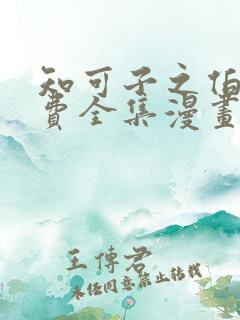 知可子之伯
费全集漫畫
王傅君
未经同意禁止转载